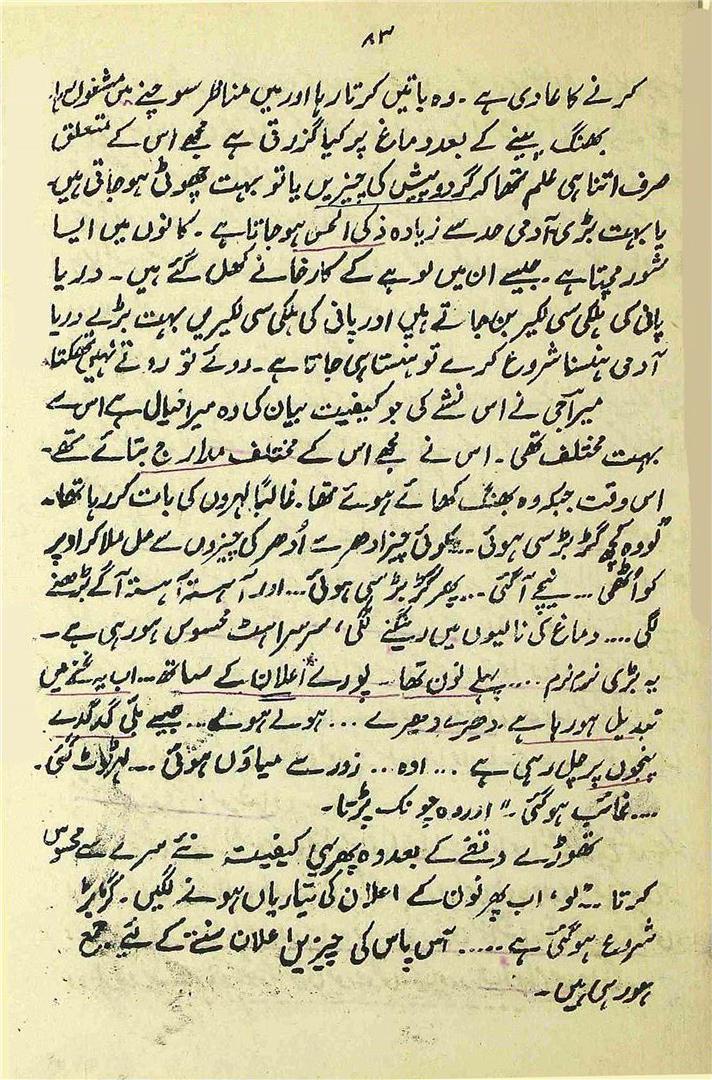 ۸۳
کرنے کا عادی ہے ۔ وہ باتیں کرتا رہا اور میں مناظر سوچنے میں مشغول رہا
بھنگ پینے کے بعد دماغ پر کیا گزرتی ہے مجھے اس کے متعلق
صرف اتنا ہی علم تھا کہ گرد و پیش کی چیزیں یا تو بہت چھوٹی ہو جاتی ہیں
یا بہت بڑی آدمی حد سے زیادہ ذکی الحس ہو جاتا ہے ۔ کانوں میں ایسا
شور مچتا ہے ۔ جیسے ان میں لوہے کے کارخانے کھل گئے ہیں ۔ دریا
پانی کی ہلکی سی لکیر بن جاتے ہیں اور پانی کی ہلکی سی لکیریں بہت بڑے دریا
آدمی ہنسنا شروع کرے تو ہنستا ہی جاتا ہے ۔ روئے تو روتے نہیں تھکتا
میراجی نے اس نشے کی جو کیفیت بیان کی وہ میرا خیال ہے اس سے
بہت مختلف تھی ۔ اس نے مجھے اس کے مختلف مدارج بتائے تھے ۔
اس وقت جبکہ وہ بھنگ کھائے ہوئے تھا ۔ غالباً لہروں کی بات کر رہا تھا ۔
"لو وہ کچھ گڑبڑ سی ہوئی ... کوئی چیز ادھر سے اُدھر کی چیزوں سے مل ملا کر اوپر
کو اُٹھی ... نیچے آ گئی ... پھر گڑبڑ سی ہوئی ... اور آہستہ آہستہ آگے بڑھنے
لگی .... دماغ کی نالیوں میں رینگنے لگی ، سرسراہٹ محسوس ہو رہی ہے ۔
پہ بڑی نرم نرم .... پہلے نون تھا ۔ پورے اعلان کے ساتھ ... اب یہ غنے میں
تبدیل ہو رہا ہے ۔ دھیرے دھیرے ... ہولے ہولے ... جیسے بلی گدگدے
پنجوں پر چل رہی ہے ... اوہ ... زور سے میاؤں ہوئی ... لہر ٹوٹ گئی ۔
.... غائب ہو گئی ۔" اور وہ چونک پڑتا ۔
تھوڑے وقفے کے بعد وہ پھر یہی کیفیت نئے سرے سے محسوس
کرتا ۔ "لو ، اب پھر نون کے اعلان کی تیاریاں ہونے لگیں ۔ گڑبڑ
شروع ہو گئی ہے ..... آس پاس کی چیزیں اعلان سننے کے لیے جمع
ہو رہی ہیں ۔